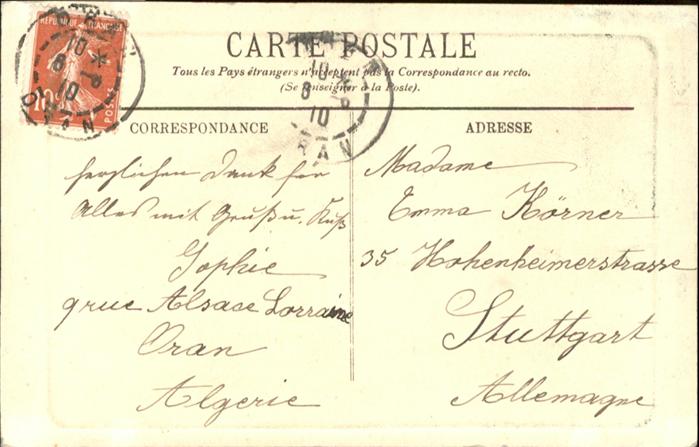 REPUBLIQUE FRANÇAISE
10
POSTES
CARTE POSTALE
Tous les Pays étrangers n'acceptent pas la Correspondance au recto.
(Se renseigner à la Poste).
10
8
10
ORAN
CORRESPONDANCE
herzlichen Dank für
Alles mit Gruß u. Kuß
Sophie
9 rue Alsace Lorraine
Oran
Algerie
ADRESSE
Madame
Emma Körner
35 Hohenheimerstrasse
Stuttgart
Allemagne